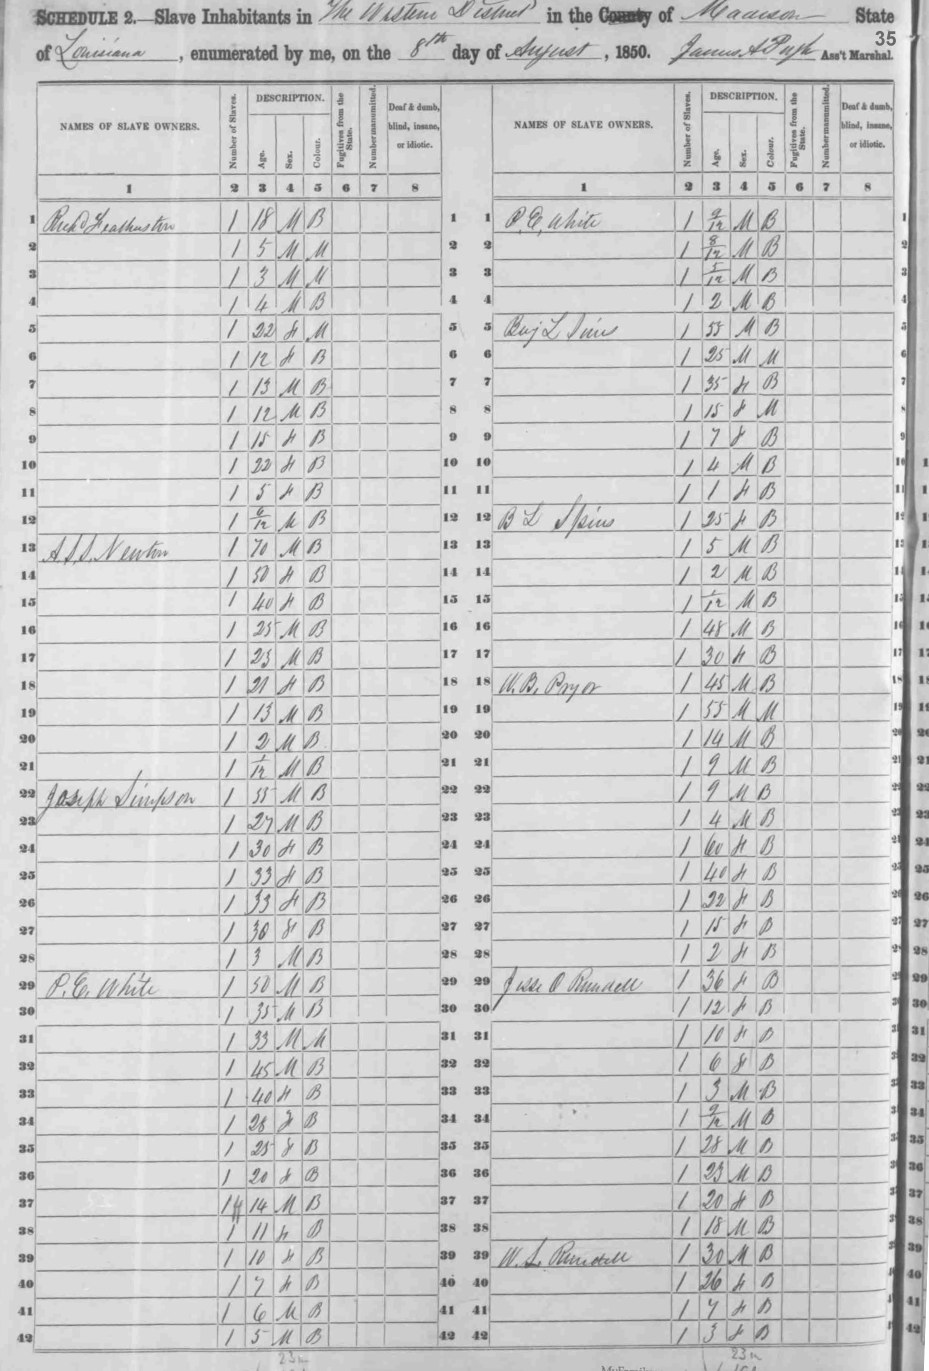 SCHEDULE 2.—Slave Inhabitants in The Western District in the County of Madison State
of Louisiana, enumerated by me, on the 8th day of August, 1850. James A Pugh Ass't Marshal.
35
NAMES OF SLAVE OWNERS. Number of Slaves. DESCRIPTION. Age. Sex. Colour. Fugitives from the State. Number manumitted. Deaf & dumb, blind, insane, or idiotic.
NAMES OF SLAVE OWNERS. Number of Slaves. DESCRIPTION. Age. Sex. Colour. Fugitives from the State. Number manumitted. Deaf & dumb, blind, insane, or idiotic.
1 2 3 4 5 6 7 8 1 2 3 4 5 6 7 8
1 Richd Featherston 1 18 M B 1
2 1 5 M M 2
3 1 3 M M 3
4 1 4 M B 4
5 1 22 f M 5
6 1 12 f B 6
7 1 13 M B 7
8 1 12 M B 8
9 1 15 f B 9
10 1 22 f B 10
11 1 5 f B 11
12 1 6/12 M B 12
13 A.S.S. Newton 1 70 M B 13
14 1 50 f B 14
15 1 40 f B 15
16 1 25 M B 16
17 1 23 M B 17
18 1 21 f B 18
19 1 13 M B 19
20 1 2 M B 20
21 1 1/12 M B 21
22 Joseph Simpson 1 55 M B 22
23 1 27 M B 23
24 1 30 f B 24
25 1 33 f B 25
26 1 33 f B 26
27 1 30 f B 27
28 1 3 M B 28
29 P. C. White 1 50 M B 29
30 1 35 M B 30
31 1 33 M M 31
32 1 45 M B 32
33 1 40 f B 33
34 1 28 f B 34
35 1 25 f B 35
36 1 20 f B 36
37 1 14 M B 37
38 1 11 f B 38
39 1 10 f B 39
40 1 7 f B 40
41 1 6 M B 41
42 1 5 M B 42
1 P. C. White 1 9/12 M B 1
2 1 8/12 M B 2
3 1 5/12 M B 3
4 1 2 M B 4
5 Benj L Sims 1 55 M B 5
6 1 25 M M 6
7 1 35 f B 7
8 1 15 f M 8
9 1 7 f B 9
10 1 4 M B 10
11 1 1 f B 11
12 B L 1 25 f B 12
13 1 5 M B 13
14 1 2 M B 14
15 1 1/12 M B 15
16 1 48 M B 16
17 1 30 f B 17
18 W. B. Pryor 1 45 M B 18
19 1 55 M M 19
20 1 14 M B 20
21 1 9 M B 21
22 1 9 M B 22
23 1 4 M B 23
24 1 60 f B 24
25 1 40 f B 25
26 1 22 f B 26
27 1 15 f B 27
28 1 2 f B 28
29 Jesse O Rundell 1 36 f B 29
30 1 12 f B 30
31 1 10 f B 31
32 1 6 f B 32
33 1 3 M B 33
34 1 2/12 M B 34
35 1 28 M B 35
36 1 23 M B 36
37 1 20 f B 37
38 1 18 M B 38
39 W. L. Rundell 1 30 M B 39
40 1 26 f B 40
41 1 7 f B 41
42 1 3 f B 42
23m 23m